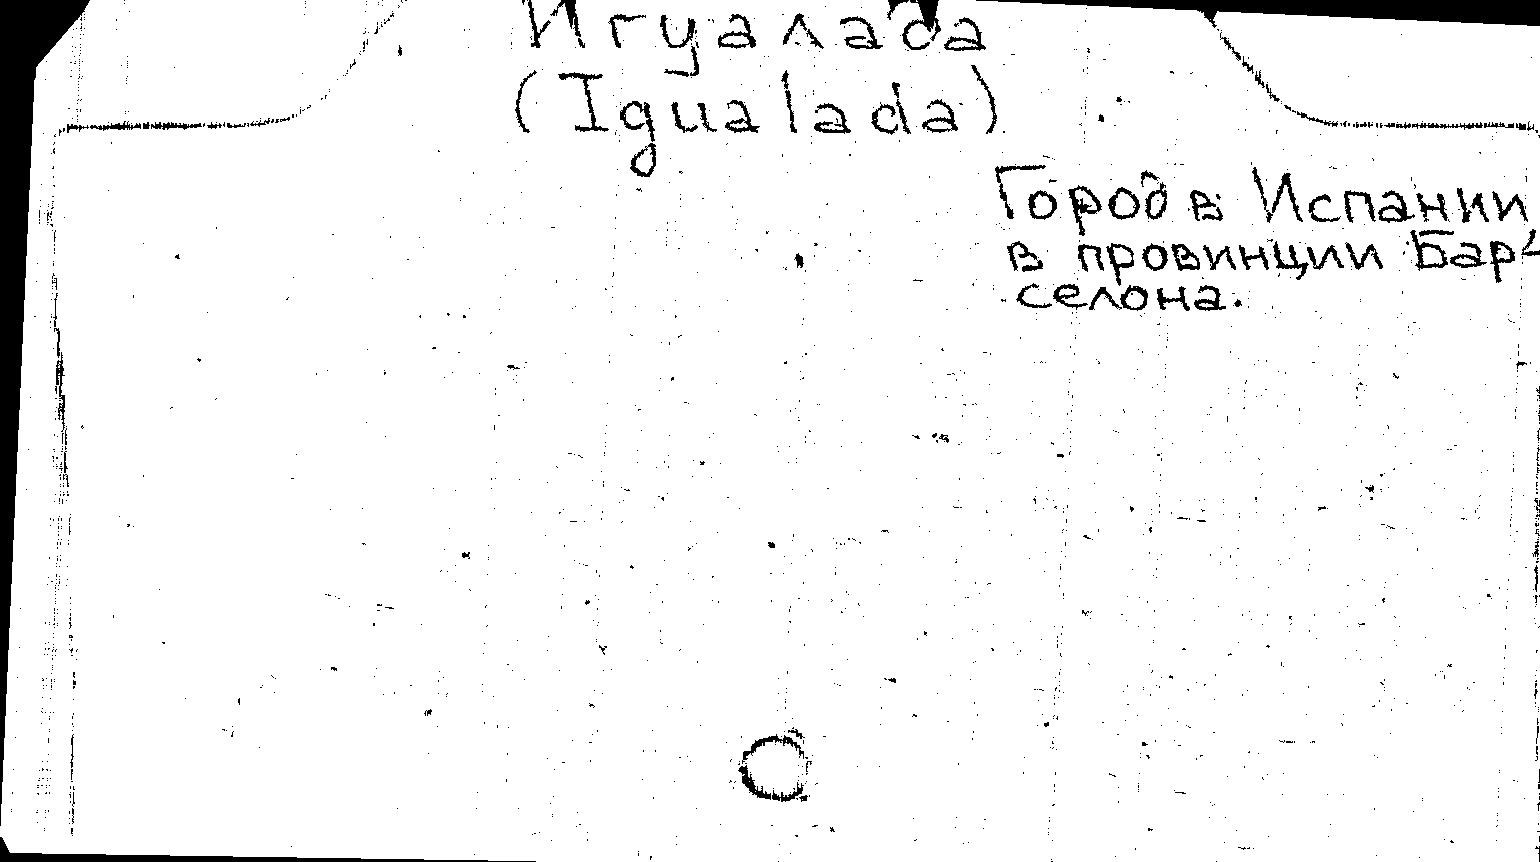 Игуалада
(Igualada)
Город в Испании
в провинции Бар-
селона.